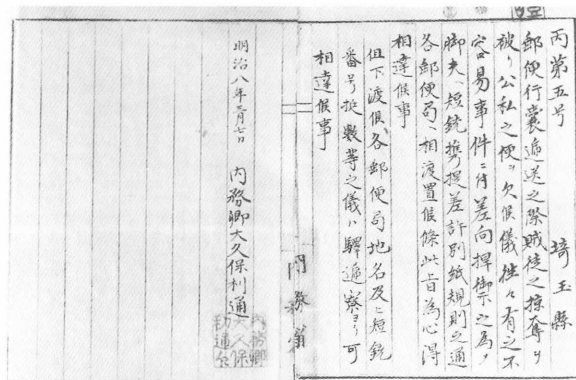 丙第五号
埼玉縣
郵便行嚢逓送之際賊徒之掠奪ヲ
被リ公私之便ヲ欠候儀往々有之不
容易事件ニ付差向捍禦之為メ
脚夫ヘ短銃携提差許別紙規則之通
各郵便局ヘ相渡置候條此旨為心得
相達候事
但下渡候各郵便局地名及ヒ短銃
番号挺数等之儀ハ驛逓寮ヨリ可
相達候事
内務省
明治八年三月七日
内務卿大久保利通